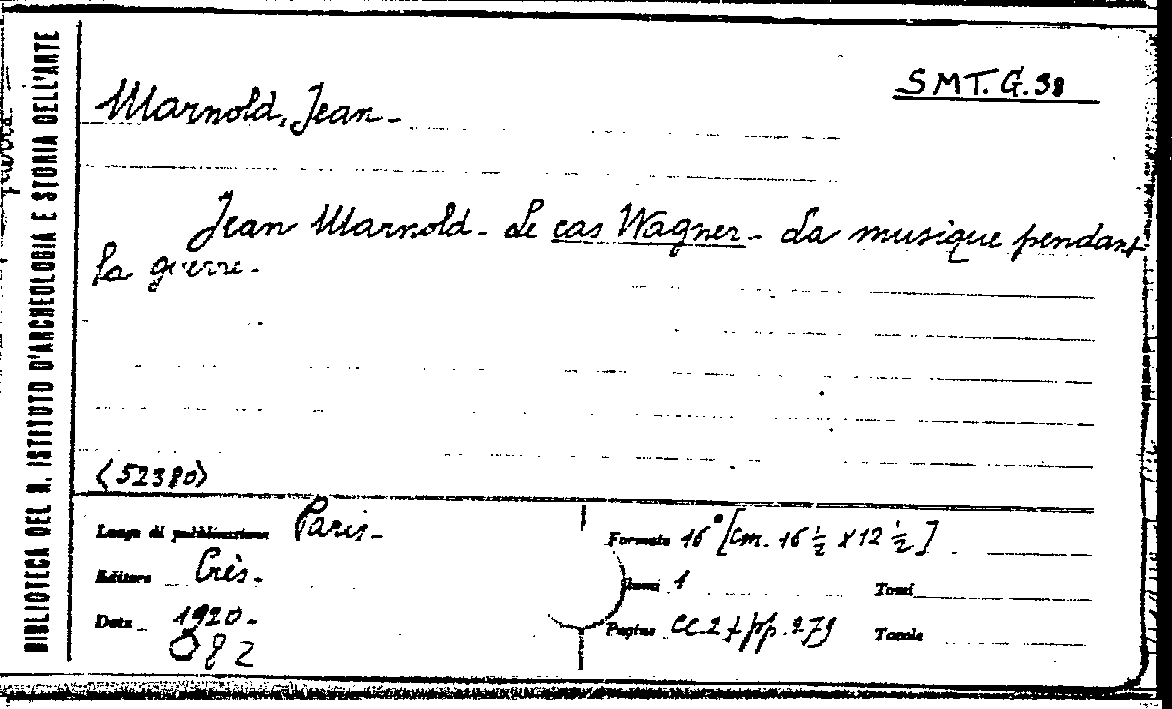 BIBLIOTECA DEL R. ISTITUTO D'ARCHEOLOGIA E STORIA DELL'ARTE
SMT.G.38
Marnold, Jean -
Jean Marnold - Le cas Wagner - La musique pendant
la guerre -
(52380)
Luogo di pubblicazione Paris -
Editore Crès -
Data 1920 -
082
Formato 16° [cm. 16 ½ x 12 ½]
1 Tomi
Pagine cc. 2 + pp. 279 Tavole